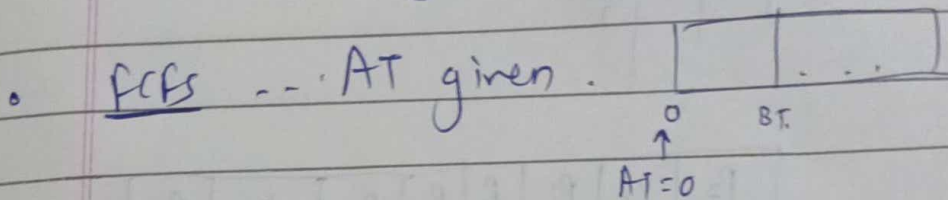 • FCFS ... AT given. . . .
0 BT.
↑
AT=0